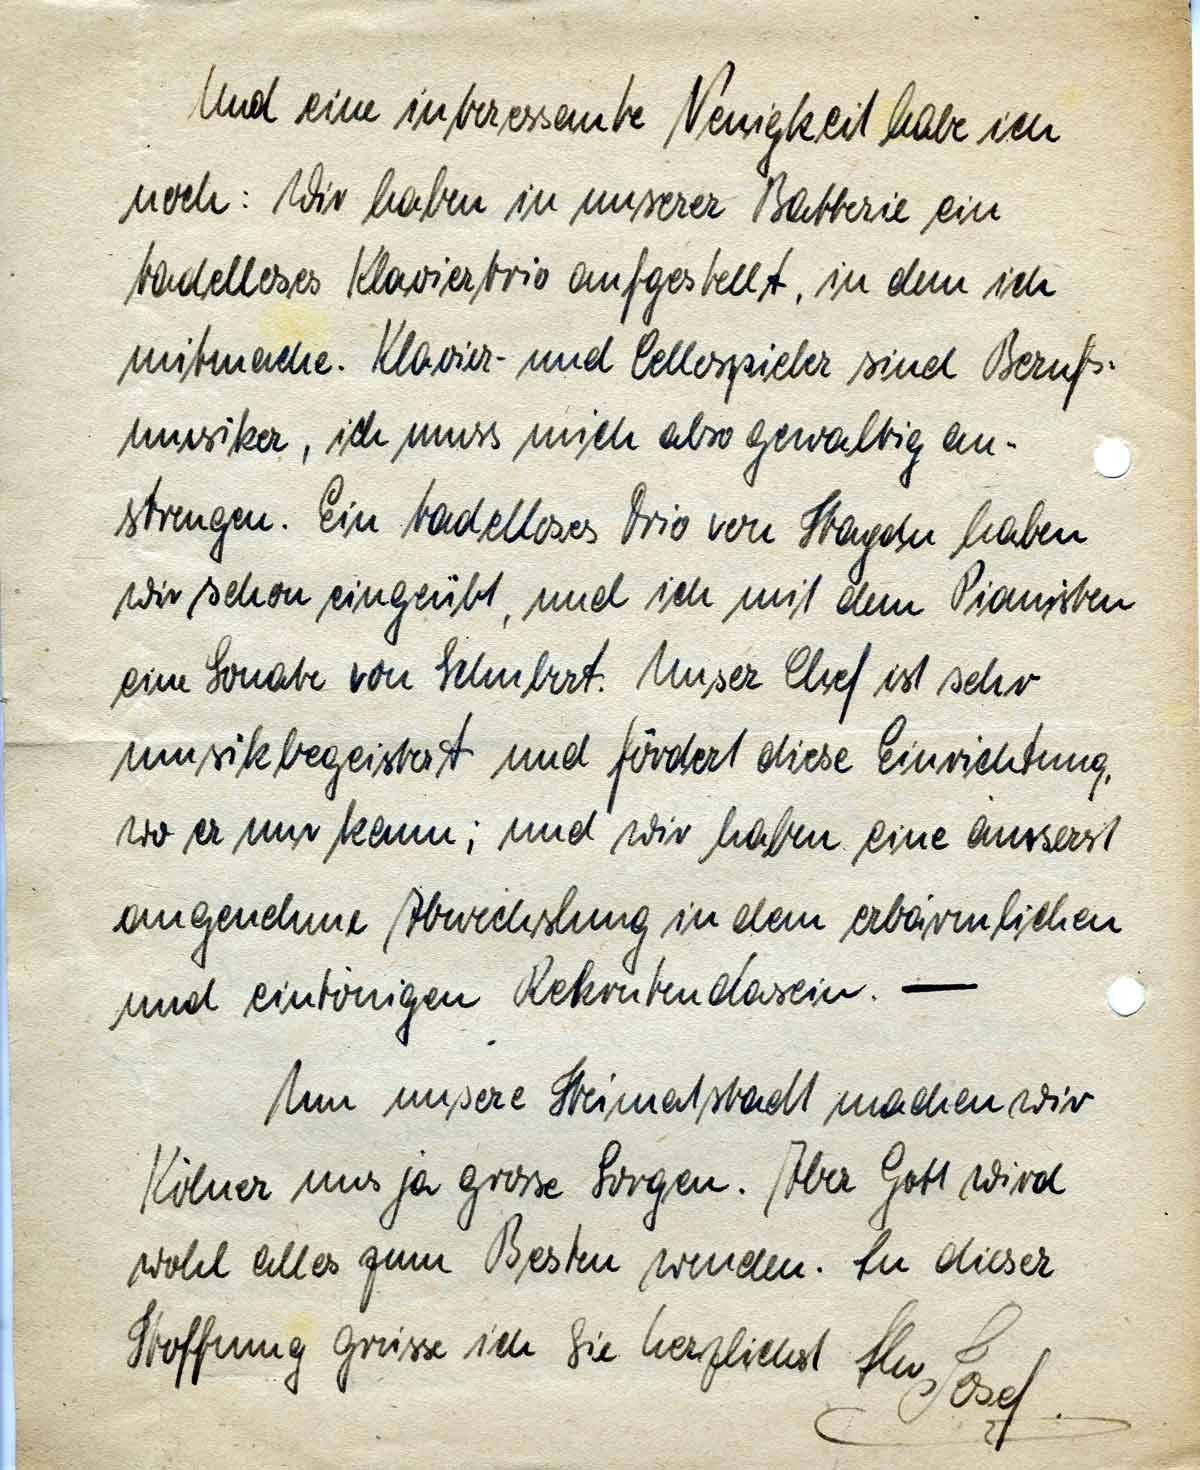 Und eine interessante Neuigkeit habe ich
noch: Wir haben in unserer Batterie ein
tadelloses Klaviertrio aufgestellt, in dem ich
mitmache. Klavier- und Cellospieler sind Berufs-
musiker, ich muss mich also gewaltig an-
strengen. Ein tadelloses Trio von Haydn haben
wir schon eingeübt, und ich mit dem Pianisten
eine Sonate von Schubert. Unser Chef ist sehr
musikbegeistert und fördert diese Einrichtung,
wo er nur kann; und wir haben eine äusserst
angenehme Abwechslung in dem erbärmlichen
und eintönigen Rekrutendasein. —
Um unsere Heimatstadt machen wir
Kölner uns ja grosse Sorgen. Aber Gott wird
wohl alles zum Besten wenden. In dieser
Hoffnung grüsse ich Sie herzlichst Ihr Josef.